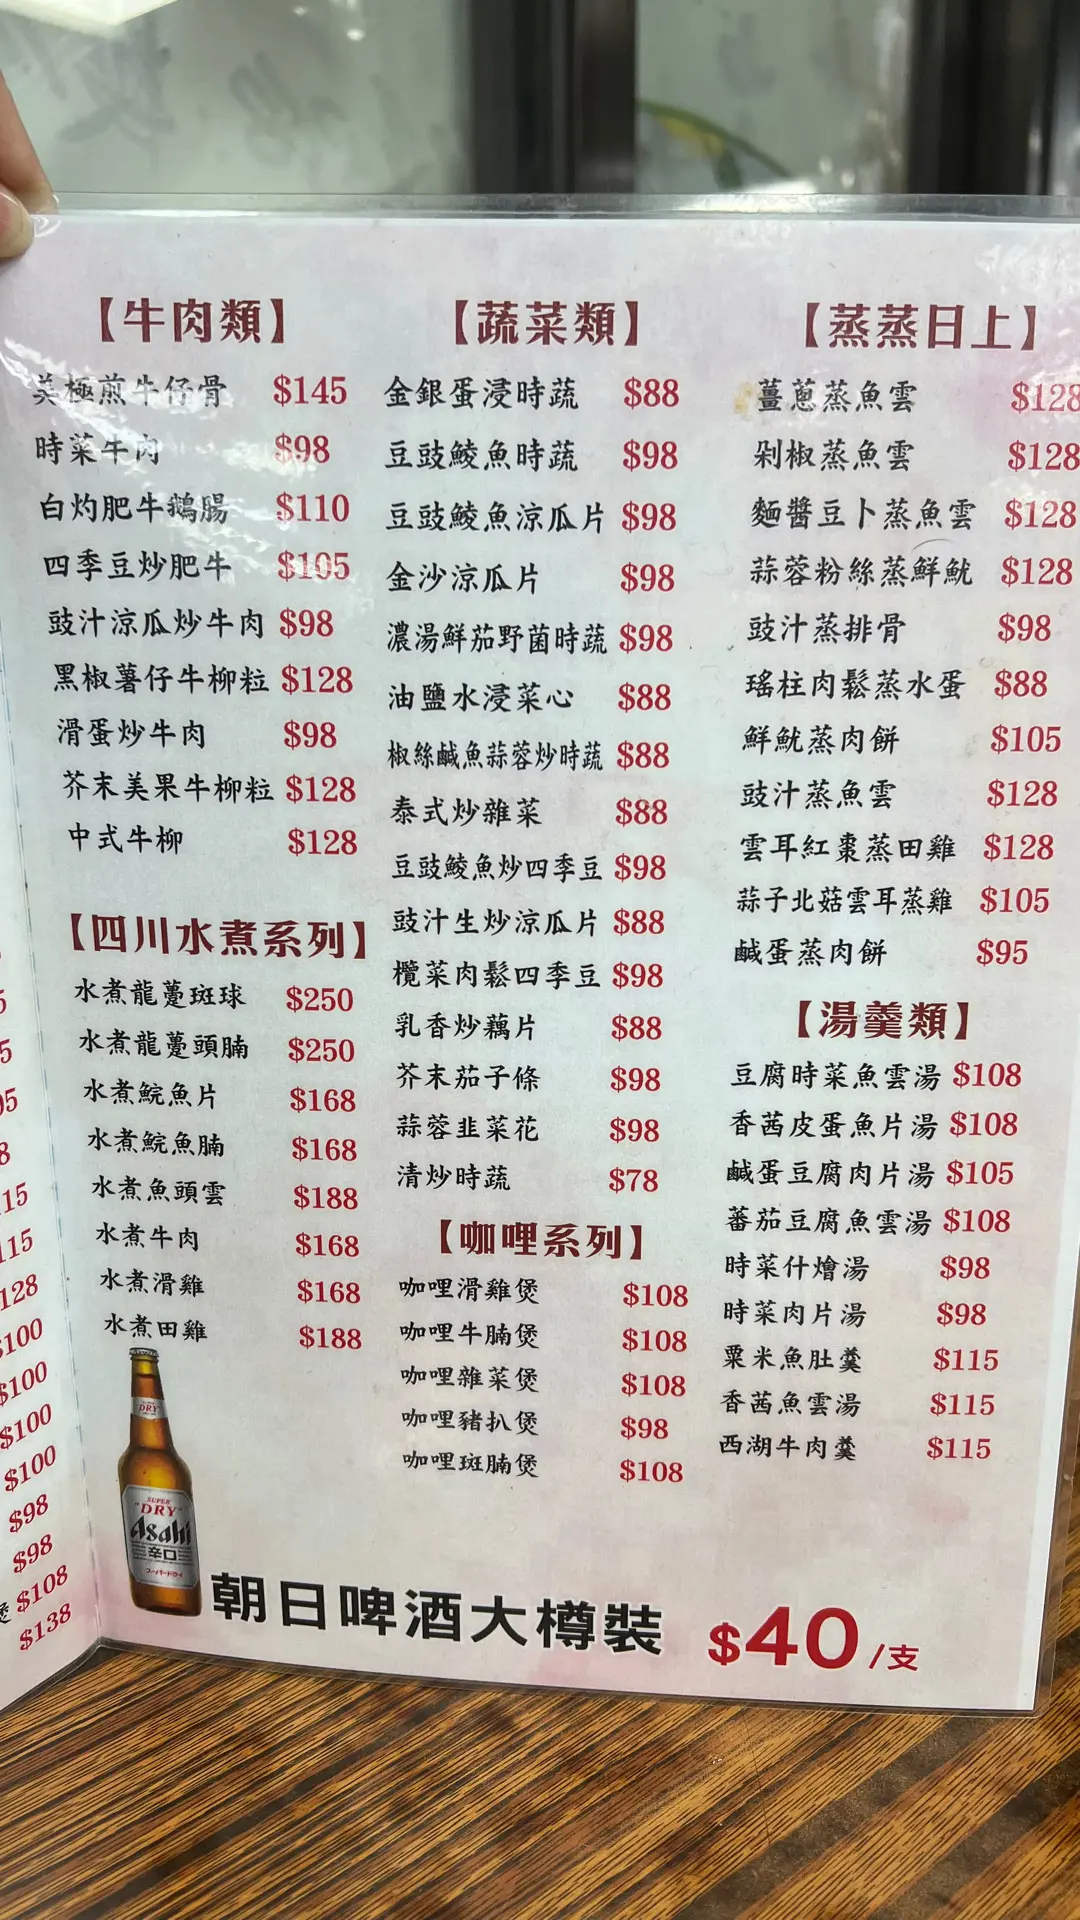 【牛肉類】
美極煎牛仔骨 $145
時菜牛肉 $98
白灼肥牛鵝腸 $110
四季豆炒肥牛 $105
豉汁涼瓜炒牛肉 $98
黑椒薯仔牛柳粒 $128
滑蛋炒牛肉 $98
芥末美果牛柳粒 $128
中式牛柳 $128
【四川水煮系列】
水煮龍躉斑球 $250
水煮龍躉頭腩 $250
水煮鯇魚片 $168
水煮鯇魚腩 $168
水煮魚頭雲 $188
水煮牛肉 $168
水煮滑雞 $168
水煮田雞 $188
【蔬菜類】
金銀蛋浸時蔬 $88
豆豉鯪魚時蔬 $98
豆豉鯪魚涼瓜片 $98
金沙涼瓜片 $98
濃湯鮮茄野菌時蔬 $98
油鹽水浸菜心 $88
椒絲鹹魚蒜蓉炒時蔬 $88
泰式炒雜菜 $88
豆豉鯪魚炒四季豆 $98
豉汁生炒涼瓜片 $88
欖菜肉鬆四季豆 $98
乳香炒藕片 $88
芥末茄子條 $98
蒜蓉韭菜花 $98
清炒時蔬 $78
【咖哩系列】
咖哩滑雞煲 $108
咖哩牛腩煲 $108
咖哩雜菜煲 $108
咖哩豬扒煲 $98
咖哩斑腩煲 $108
【蒸蒸日上】
薑蔥蒸魚雲 $128
剁椒蒸魚雲 $128
麵醬豆卜蒸魚雲 $128
蒜蓉粉絲蒸鮮魷 $128
豉汁蒸排骨 $98
瑤柱肉鬆蒸水蛋 $88
鮮魷蒸肉餅 $105
豉汁蒸魚雲 $128
雲耳紅棗蒸田雞 $128
蒜子北菇雲耳蒸雞 $105
鹹蛋蒸肉餅 $95
【湯羹類】
豆腐時菜魚雲湯 $108
香茜皮蛋魚片湯 $108
鹹蛋豆腐肉片湯 $105
蕃茄豆腐魚雲湯 $108
時菜什燴湯 $98
時菜肉片湯 $98
粟米魚肚羹 $115
香茜魚雲湯 $115
西湖牛肉羹 $115
SUPER
"DRY"
Asahi
辛口
スーパードライ
朝日啤酒大樽裝 $40/支
$100
$100
$100
$98
$98
$108
$138